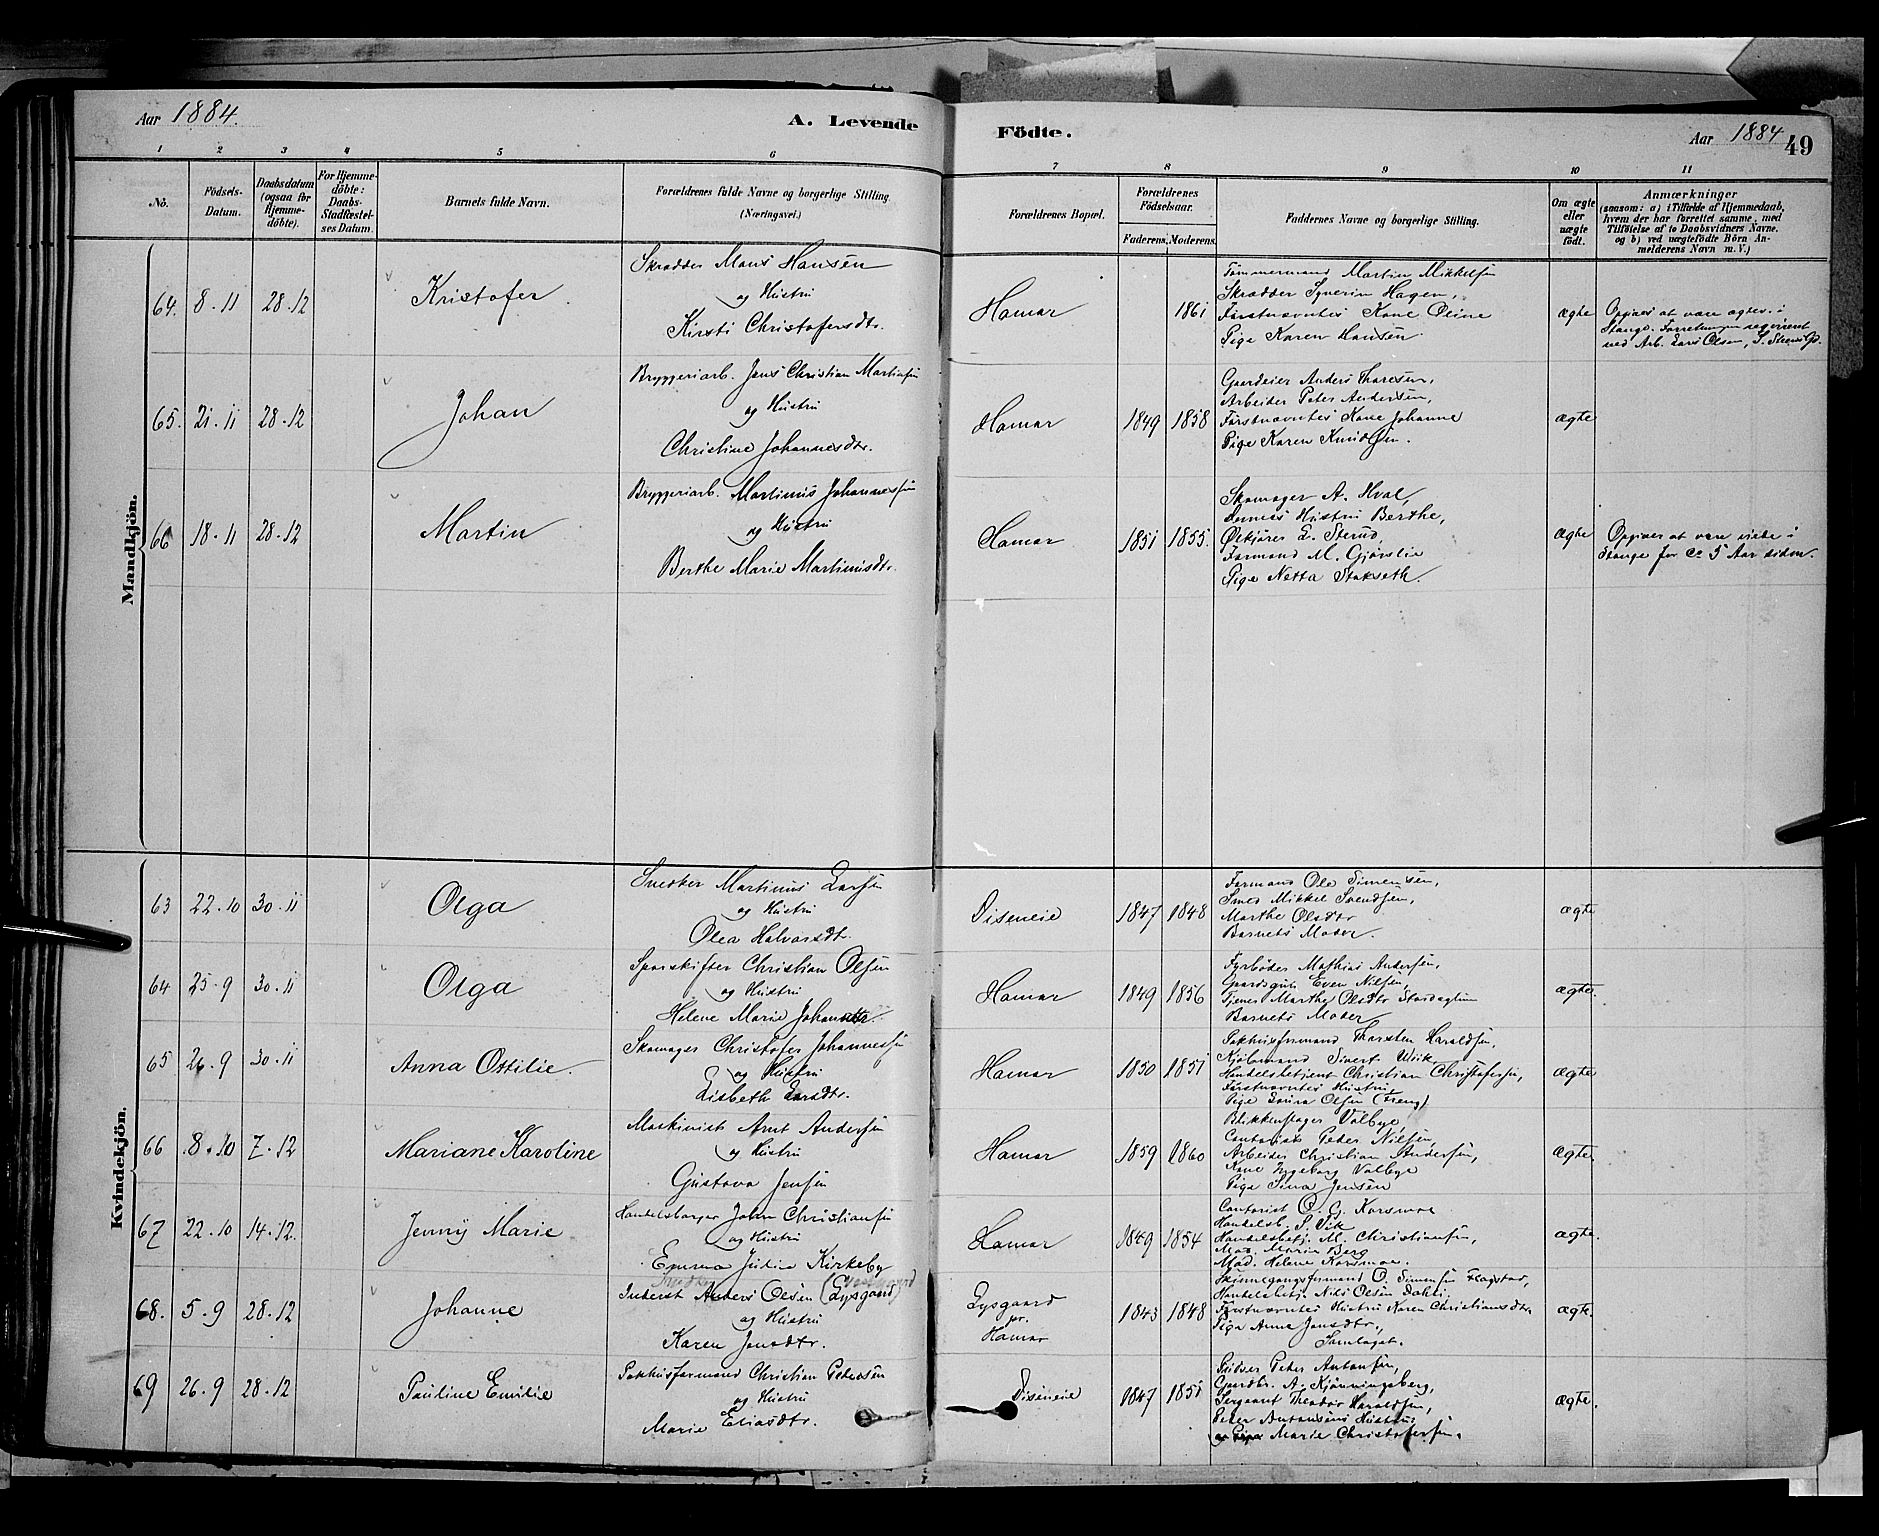 Aar 1884.
A. Levende Födte.
Aar 1884
49
1 2 3 4 5 6 7 8 9 10 11
No.
Födsels-Datum.
Daabsdatum (ogsaa for Hjemme-döbte).
For Hjemme-döbte: Daabs-Stadfæstel-ses Datum.
Barnets fulde Navn.
Forældrenes fulde Navne og borgerlige Stilling. (Næringsvei.)
Forældrenes Bopæl.
Forældrenes Födselsaar.
Faderens. Moderens.
Faddernes Navne og borgerlige Stilling.
Om ægte eller uægte födt.
Anmærkninger
(saasom: a) i Tilfælde af Hjemmedaab,
hvem der har forrettet samme, med
Tilföielse af to Daabsvidners Navne.
og b) ved uægtefödte Börn An-
melderens Navn m. V.)
Mandkjön.
64. 8.11 28.12 Kristofer.
Skrædder Mons Hansen
og Hustru
Kirsti Christofersdtr.
Hamar 1861
Tømmermand Martin Mikkelsen
Skrædder Syverin Hagen,
Førstnævntes Kone Oline
Pige Karen Hansen
ægte
Opgives at være ægtev. i
Stange. Forretningen
ved Arb. Lars Olsen,
65. 21.11 28.12 Johan
Bryggeriarb. Jens Christian Martinsen
og Hustru
Christine Johannesdtr.
Hamar 1849 1858
Gaardeier Anders Thoresen,
Arbeider Peter Andersen,
Førstnævntes Kone Johanne
Pige Karen Knudsen.
ægte
66 18.11 28.12 Martin
Bryggeriarb. Martinus Johannessen
og Hustru
Berthe Marie Martinusdtr.
Hamar 1851 1855.
Skomager A. Hval,
Hustru Berthe,
Ølkjører L. Sterud,
Formand M. Gjørslie
Pige Netta Stakseth.
ægte
Opgives at være viede i
Stange for ca 5 Aar siden.
Kvindekjön.
63 22.10 30.11 Olga
Snedker Martinus Larsen
og Hustru
Olea Halvorsdtr.
Diseneie 1847 1848
Formand Ole Simensen,
Smed Mikkel Svendsen,
Marthe Olsdtr
Barnets Moder.
ægte
64 25.9 30.11 Olga
Sporskifter Christian Olsen
og Hustru
Helene Marie
Hamar 1849 1856
Fyrbøder Mathias Andersen,
Gaardsgut Even Nilsen,
Tjener Marthe Olsdtr
Barnets Moder
ægte.
65 26.9 30.11 Anna Ottilie.
Skomager Christofer Johannessen
og Hustru
Lisbeth Larsdtr.
Hamar 1850 1851
Pakhusformand Thorsten Haraldsen,
Kjøbmand Sivert Wiik,
Handelsbetjent Christian Christofersen,
Førstnævntes Hustru
Pige Laura Olsen
ægte
66 8.10 7.12 Mariane Karoline
Maskinist Arnt Andersen
og Hustru
Gustava Jensen
Hamar 1859 1860
Blikkenslager Valbye,
Contorist Peder Nilsen,
Arbeider Christian Andersen,
Kone Ingeborg Valbye
Pige Sina Jensen
ægte.
67 22.10 14.12. Jenny Marie
Handelsborger John Christiansen
og Hustru
Emma Julie Kirkeby
Hamar 1849 1854
Contorist O. G. Korsmoe
Handelsb. S. Vik
Handelsbetj. M. Christiansen,
Mad. Maria Berg
Mad. Helene Korsmoe.
ægte.
68. 5.9 28.12 Johanne
Snedker
Inderst Anders Olsen (Lysgaard)
og Hustru
Karen Jonsdtr.
Lysgaard
pr.
Hamar
1843 1848
Skinnegangsformand O. Simensen Flagstad,
Handelsbetj. Nils Olsen Dahl,
Førstnævntes Hustru Karen Christiansdtr.
Pige Anne Jonsdtr.,
Samlaget.
ægte.
69 26.9 28.12 Pauline Emilie
Pakhusformand Christian Pedersen
og Hustru
Marie Eliasdtr.
Diseneie 1847 1851
Peter Antonsen,
Gaardbr. A. Kjønningsberg,
Sergeant Theodor Haraldsen,
Peter Antonsens Hustru
og Pige Marie Christofersen.
ægte.